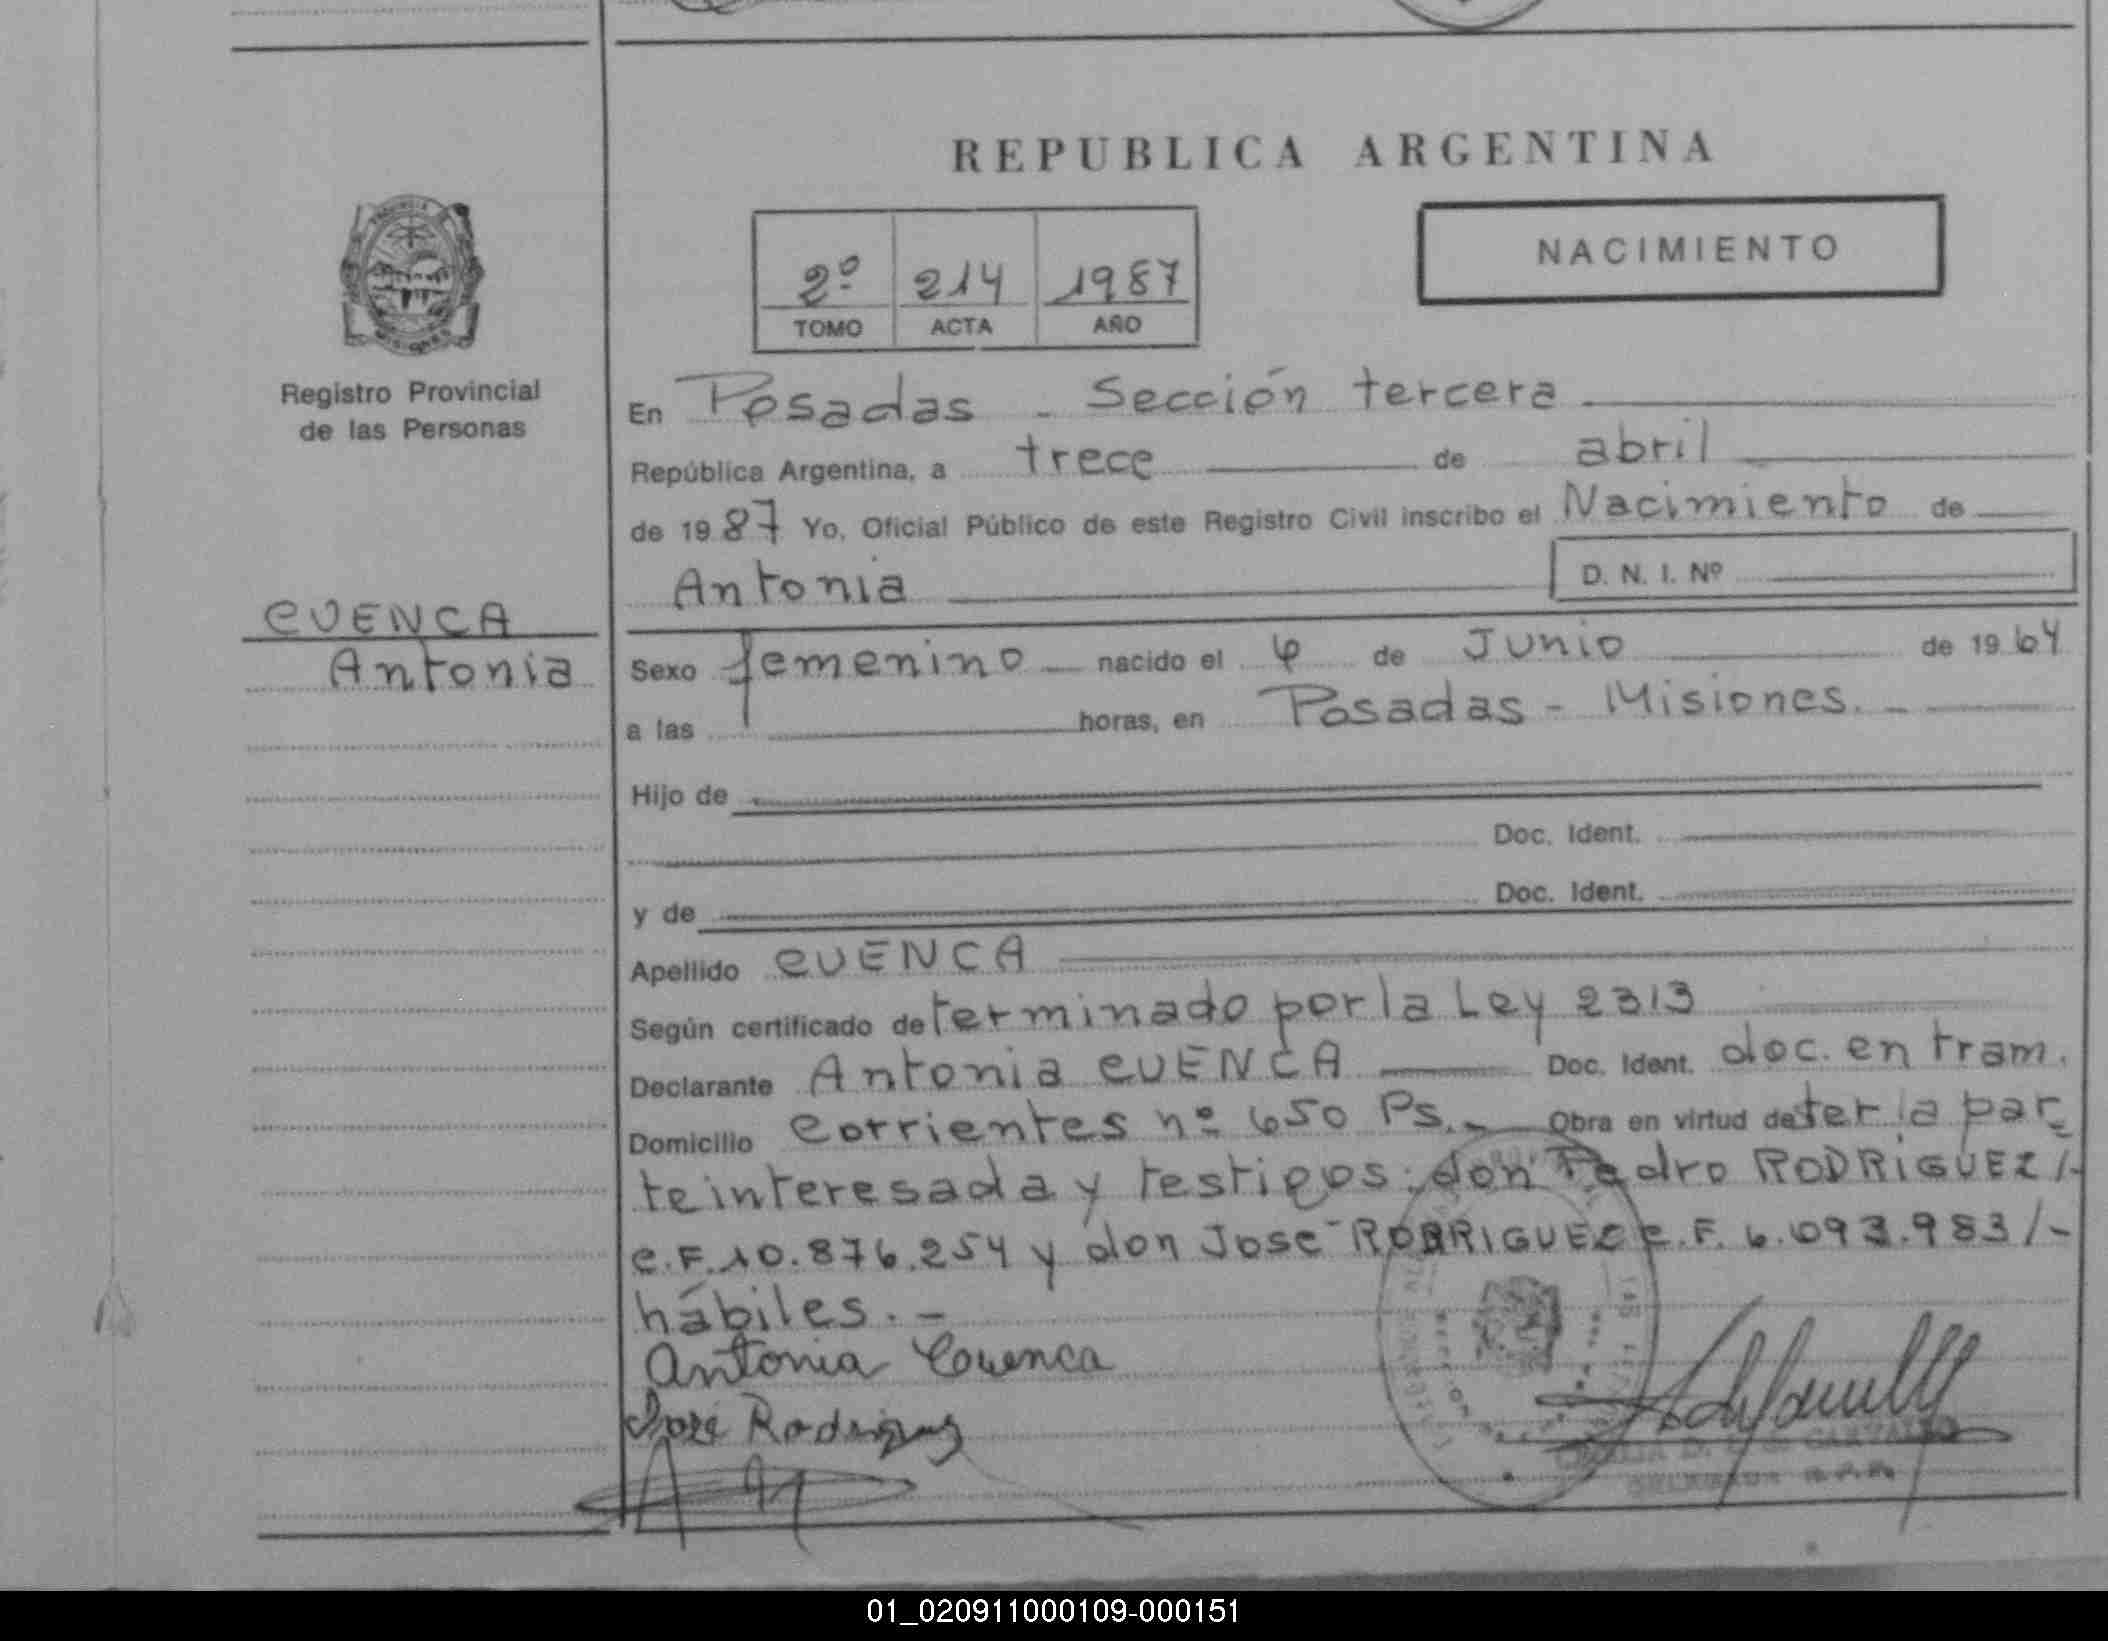 REPUBLICA ARGENTINA
NACIMIENTO
2º 214 1987
TOMO ACTA AÑO
Registro Provincial
de las Personas
CUENCA
Antonia
En Posadas - Sección tercera
República Argentina, a trece de abril
de 1987 Yo, Oficial Público de este Registro Civil inscribo el Nacimiento de
Antonia D. N. I. Nº
Sexo femenino nacido el 4 de Junio de 1964
a las horas, en Posadas - Misiones.-
Hijo de
Doc. Ident.
y de Doc. Ident.
Apellido CUENCA
Según certificado determinado por la Ley 2313
Declarante Antonia CUENCA Doc. Ident. doc. en tram.
Domicilio Corrientes nº 650 Ps.- Obra en virtud de ser la par
te interesada y testigos: don Pedro RODRIGUEZ/-
C.F. 10.876.254 y don Jose RODRIGUEZ C.F. 6.093.983/-
hábiles.-
Antonia Cuenca
José Rodriguez
01_020911000109-000151